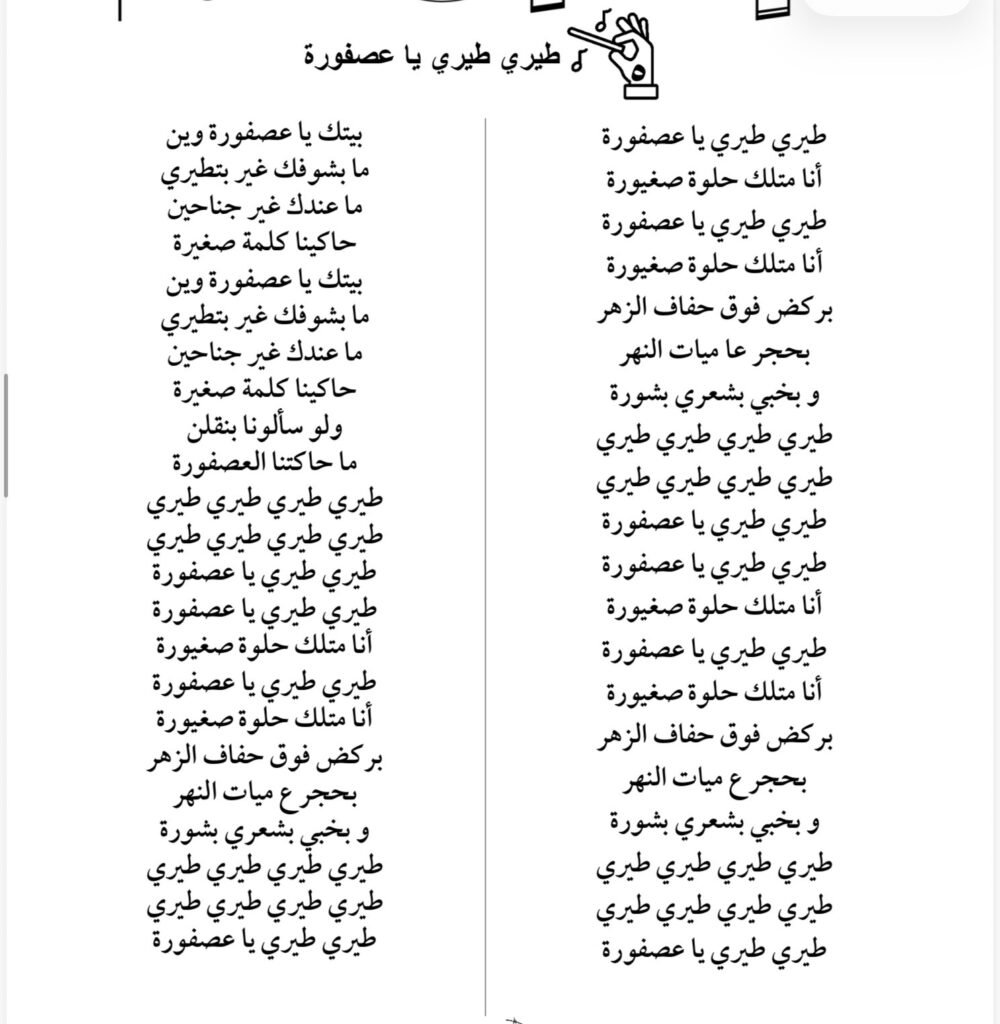 طيري طيري يا عصفورة
طيري طيري يا عصفورة
أنا متلك حلوة صغيورة
طيري طيري يا عصفورة
أنا متلك حلوة صغيورة
بركض فوق حفاف الزهر
بحجر عا ميات النهر
و بخبي بشعري بشورة
طيري طيري طيري طيري
طيري طيري طيري طيري
طيري طيري يا عصفورة
طيري طيري يا عصفورة
أنا متلك حلوة صغيورة
طيري طيري يا عصفورة
أنا متلك حلوة صغيورة
بركض فوق حفاف الزهر
بحجر ع ميات النهر
و بخبي بشعري بشورة
طيري طيري طيري طيري
طيري طيري طيري طيري
طيري طيري يا عصفورة
بيتك يا عصفورة وين
ما بشوفك غير بتطيري
ما عندك غير جناحين
حاكينا كلمة صغيرة
بيتك يا عصفورة وين
ما بشوفك غير بتطيري
ما عندك غير جناحين
حاكينا كلمة صغيرة
ولو سألونا بنقلن
ما حاكتنا العصفورة
طيري طيري طيري طيري
طيري طيري طيري طيري
طيري طيري يا عصفورة
طيري طيري يا عصفورة
أنا متلك حلوة صغيورة
طيري طيري يا عصفورة
أنا متلك حلوة صغيورة
بركض فوق حفاف الزهر
بحجر ع ميات النهر
و بخبي بشعري بشورة
طيري طيري طيري طيري
طيري طيري طيري طيري
طيري طيري يا عصفورة